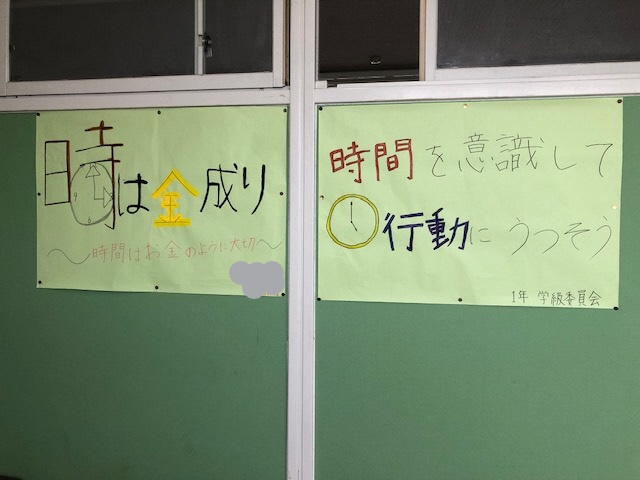 時は金成り
〜時間はお金のように大切〜
時間を意識して
行動にうつそう
1年 学級委員会